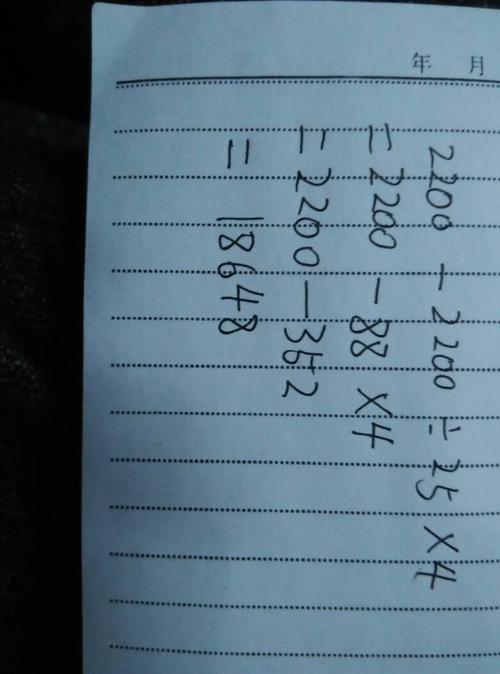 年 月
2200 - 2200 ÷ 25 × 4
= 2200 - 88 × 4
= 2200 - 352
= 18648